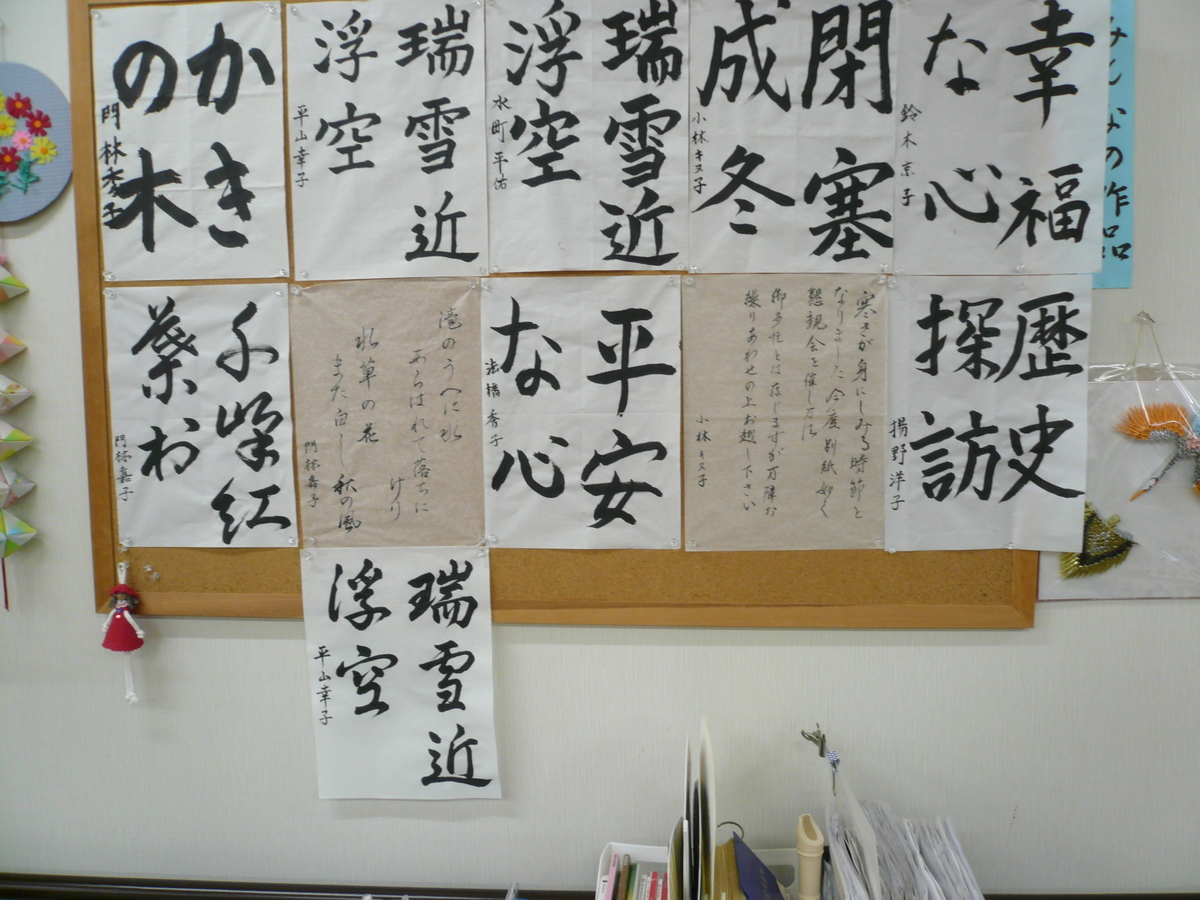 みんなの作品
幸福
な心
鈴木京子
閉塞
成冬
小林キヌ子
瑞雪近
浮空
水町平佑
瑞雪近
浮空
平山幸子
かき
の木
門林秀子
歴史
探訪
揚野洋子
寒さが身にしみる時節と
なりました今度別紙如く
懇親会を催し
御多忙とは存じますが万障お
繰りあわせの上お越し下さい
小林キヌ子
平安
な心
秀子
滝のうへに水
あらはれて落ちに
けり
水草の花
まだ白し秋の風
門林嘉子
千峰紅
葉初
門林嘉子
瑞雪近
浮空
平山幸子